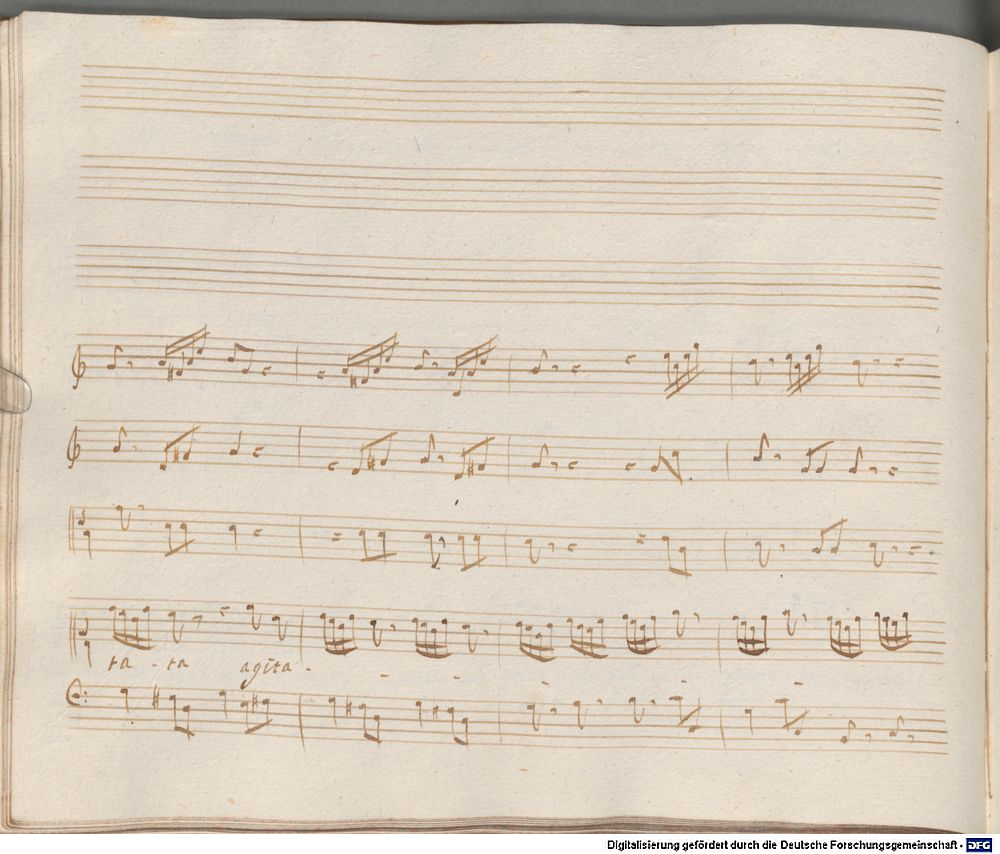 ta - ta agita -
Digitalisierung gefördert durch die Deutsche Forschungsgemeinschaft - DFG